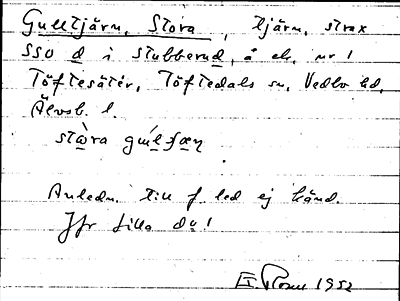 Gulltjärn, Stora, tjärn, strax
SSO d i Stubberud, å ek. nr 1
Töftesäter, Töftedals sn, Vedbo hd,
Älvsb. l.
Anledn. till f. led ej känd.
Jfr Lilla du!
1952